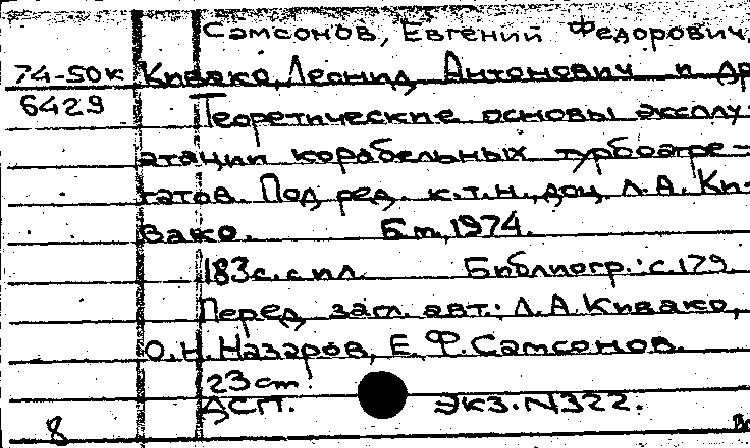 Самсонов, Евгений Федорович,
74-50к Кивако, Леонид Антонович и др
6429 Теоретические основы эксплу
атации корабельных турбоагре-
гатов. Под ред. к.т.н., доц. Л.А. Ки-
вако. Б.м., 1974.
183с. с ил. Библиогр.: с.179
Перед загл. авт.: Л.А.Кивако,
О.Н.Назаров, Е.Ф.Самсонов.
23см.
ДСП. ЭКЗ.N322.
8